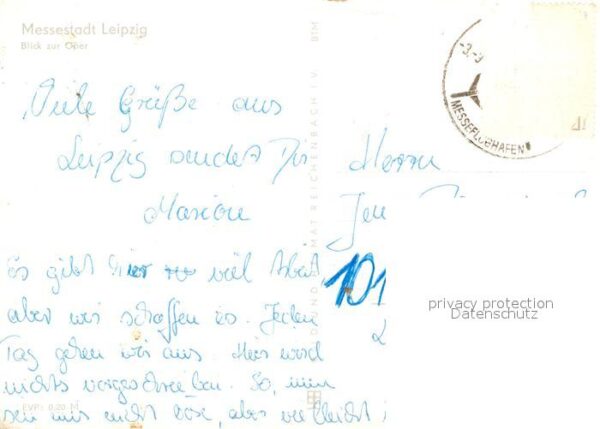 Messestadt Leipzig
Blick zur Oper
Viele Grüße aus
Leipzig sendet Dir
Marion
Es gibt hier viel Arbeit,
aber wir schaffen es. Jeden
Tag gehen wir aus. Hier wird
nichts vorgeschrieben. So, nun
sei mir nicht böse, aber vielleicht
EVP: 0,20 M
REICHENBACH I. V. BTM
Herrn
Jen
101
-3.-9
MESSEFLUGHAFEN
privacy protection
Datenschutz